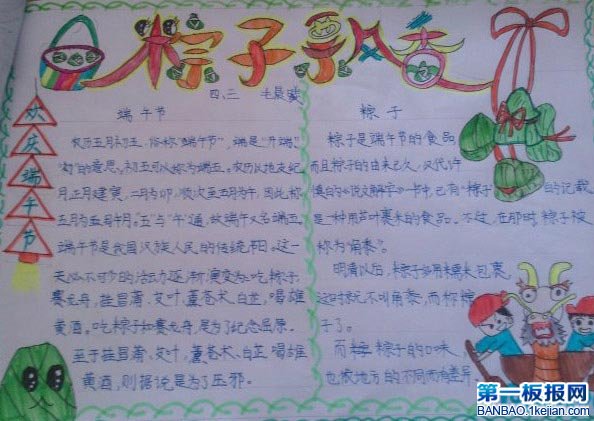 粽子飘香
四、三 毛晨
欢
庆
端
午
节
端午节
农历五月初五,俗称"端午节",端是"开端"
初的意思。初五可以称为端五。农历以地支纪
月正月建寅,二月为卯,顺次至五月为午,因此称
五月为五午月。"五"与"午"通,故端午又名端五。
端午节是我国汉族人民的传统节日。这一
天必不可少的活动逐渐演变为:吃粽子,
赛龙舟,挂菖蒲、艾叶,薰苍术、白芷,喝雄
黄酒。吃粽子和赛龙舟,是为了纪念屈原。
至于挂菖蒲、艾叶,薰苍术、白芷,喝雄
黄酒,则据说是为了压邪。
粽子
粽子是端午节的食品
而且粽子的由来已久,汉代许
慎的《说文解字》一书中,已有"粽子 的记载
是一种用芦叶裹米的食品。不过,在那时,粽子被
称为"角黍"。
明清以后,粽子多用糯米包裹,
这时就不叫角黍,而称粽
子了。
而 粽子的口味,
也依地方的不同而有差异。
第一板报网
BANBAO.1kejian.com